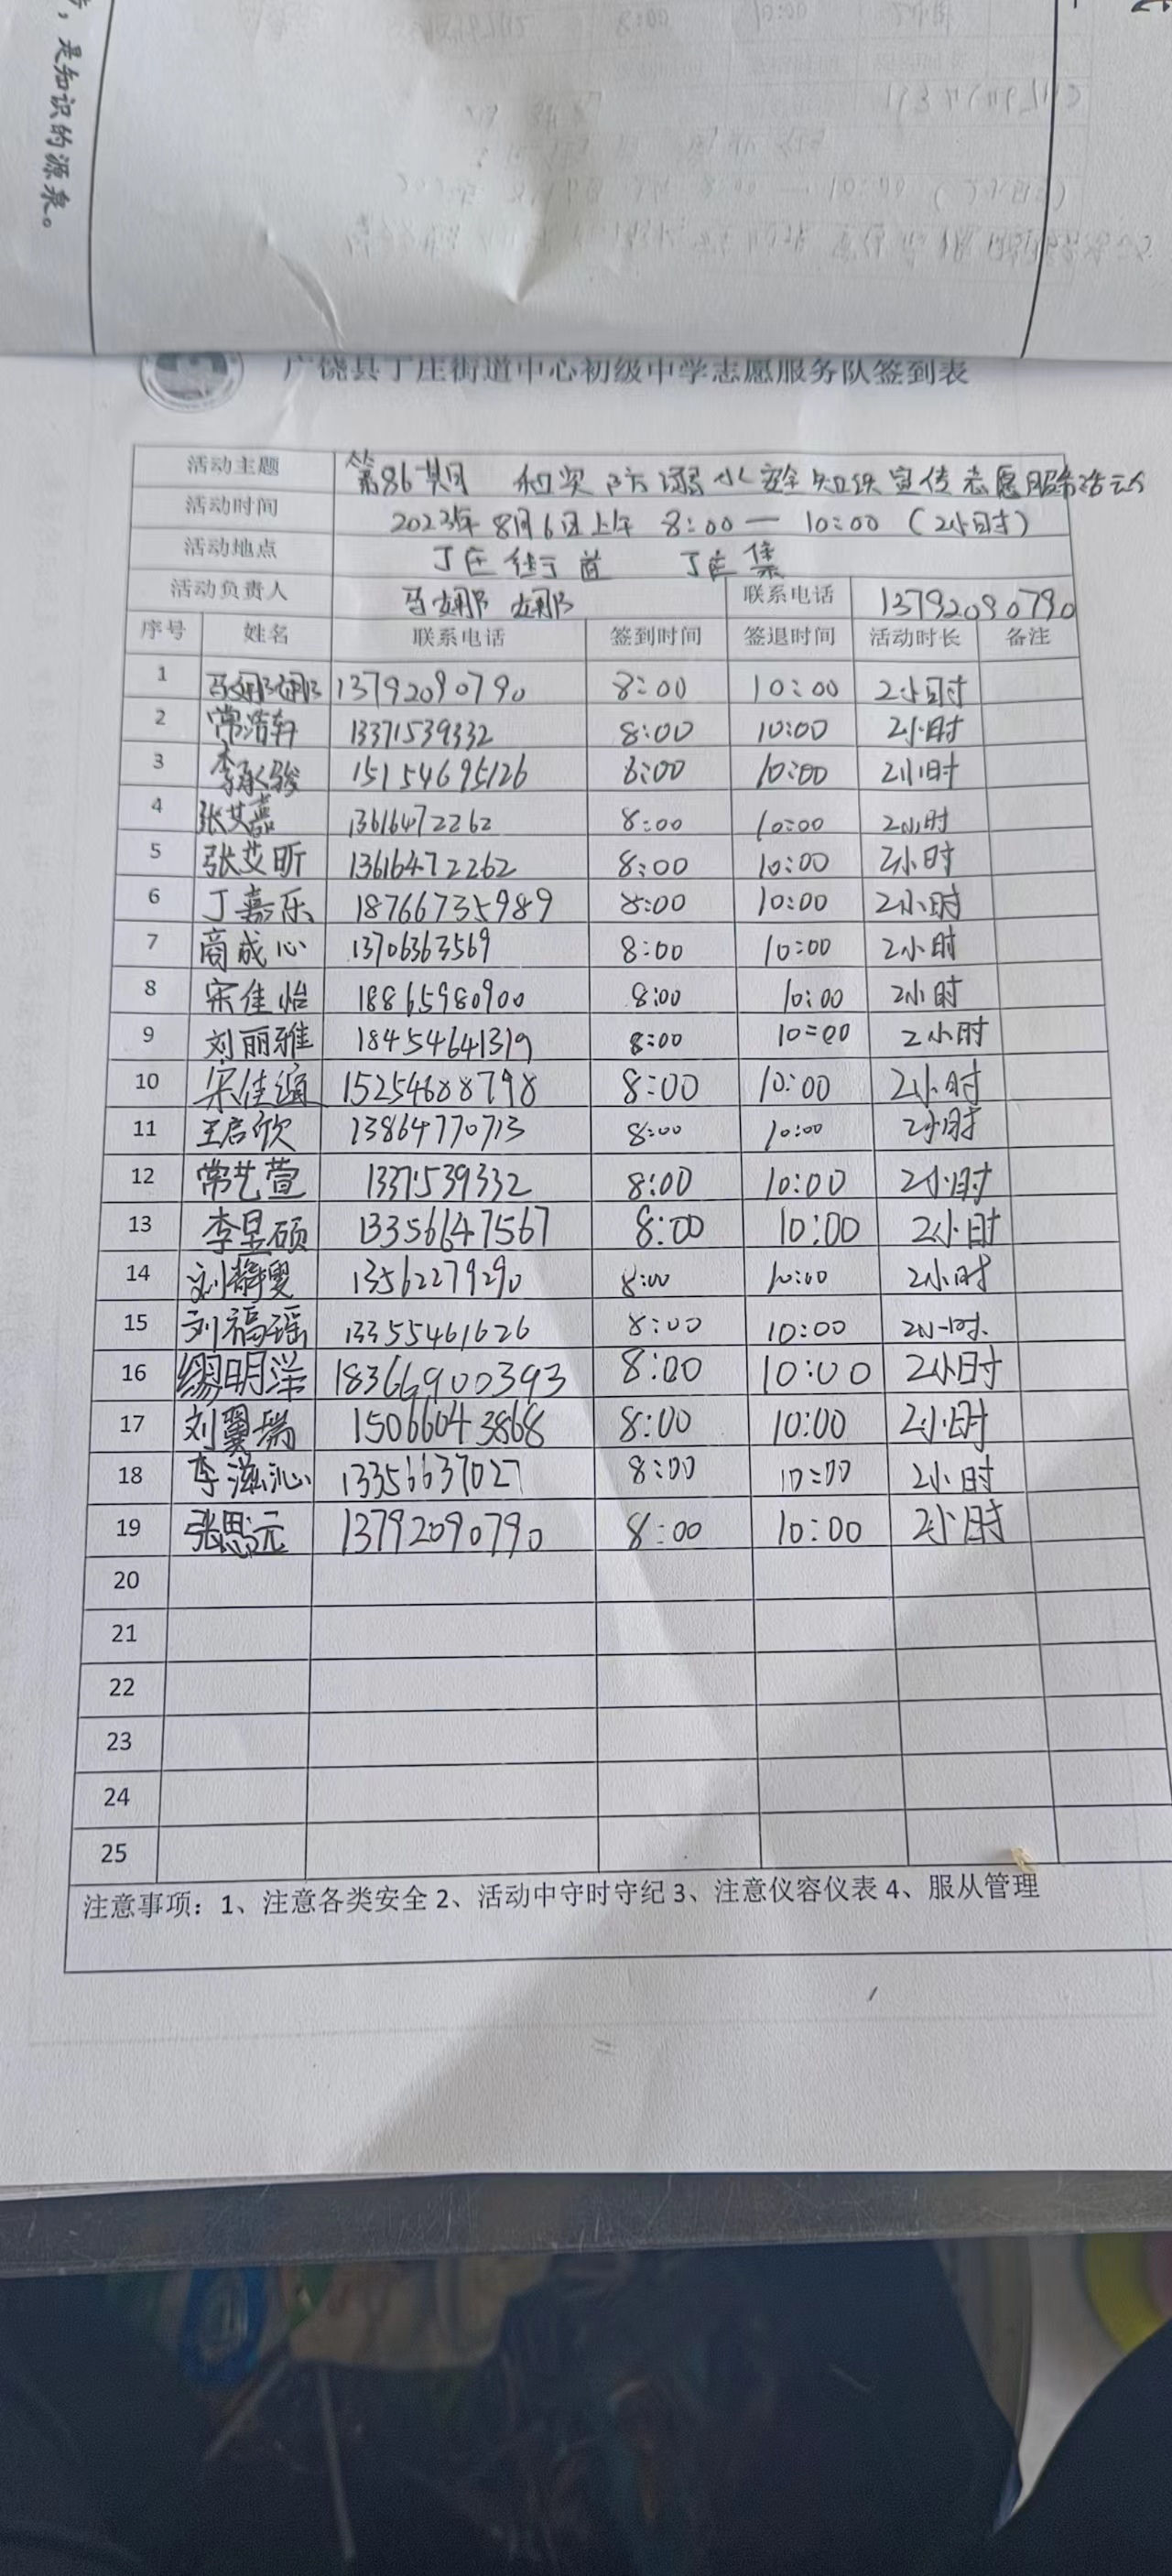 是知识的源泉。
广饶县丁庄街道中心初级中学志愿服务队签到表
活动主题 第86期 和实 防溺水安全知识宣传志愿服务活动
活动时间 2023年8月6日上午 8:00 — 10:00 (2小时)
活动地点 丁庄街道 丁庄集
活动负责人 马娜娜 联系电话 13792090790
序号 姓名 联系电话 签到时间 签退时间 活动时长 备注
1 马娜娜 13792090790 8:00 10:00 2小时
2 常浩轩 13371539332 8:00 10:00 2小时
3 李承骏 15154695126 8:00 10:00 2小时
4 张艾嘉 13616472262 8:00 10:00 2小时
5 张艾昕 13616472262 8:00 10:00 2小时
6 丁嘉乐 18766735989 8:00 10:00 2小时
7 商成心 13706363569 8:00 10:00 2小时
8 宋佳怡 18865980900 8:00 10:00 2小时
9 刘丽雅 18454641319 8:00 10:00 2小时
10 宋佳涵 15254688798 8:00 10:00 2小时
11 王启欣 13864770713 8:00 10:00 2小时
12 常艺萱 1371539332 8:00 10:00 2小时
13 李昱硕 13356647567 8:00 10:00 2小时
14 刘静雯 13562279290 8:00 10:00 2小时
15 刘福瑶 13355461626 8:00 10:00 2小时
16 缪明洋 18366900393 8:00 10:00 2小时
17 刘翼瑞 15066043868 8:00 10:00 2小时
18 李滋沁 13356637027 8:00 10:00 2小时
19 张思元 13792090790 8:00 10:00 2小时
20
21
22
23
24
25
注意事项：1、注意各类安全 2、活动中守时守纪 3、注意仪容仪表 4、服从管理